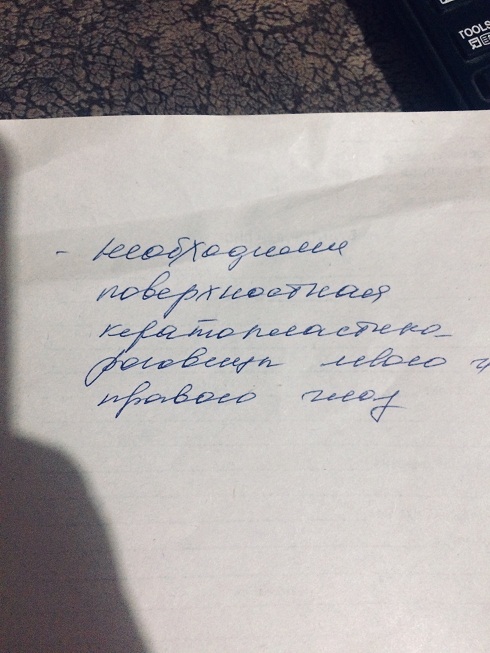 TOOLS
- необходима
поверхностная
кератопластика
роговицы левого и
правого глаз